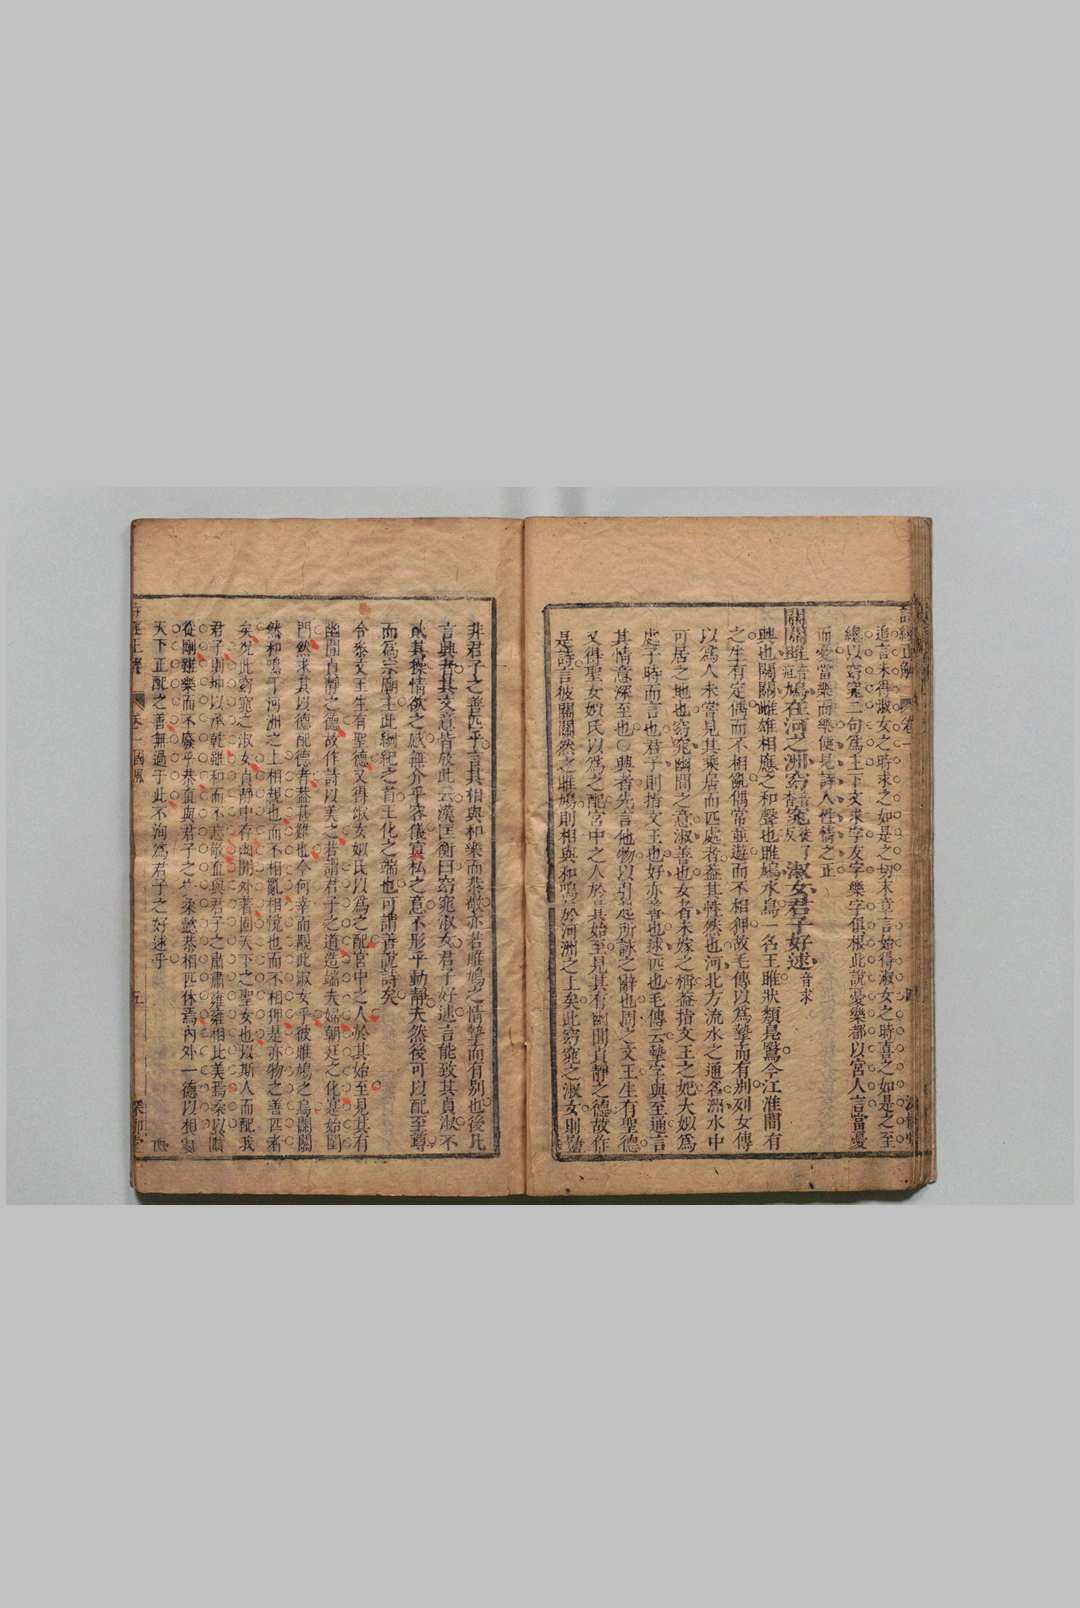 追言未得淑女之時求之如是之切末章言始得淑女之時喜之如是之至
總以窈窕二句為主下文求字友字樂字俱根此說憂樂都以宮人言當憂
而憂當樂而樂便見詩人性情之正
關關雎鳩在河之洲窈窕淑女君子好逑音求
興也關關雌雄相應之和聲也雎鳩水鳥一名王雎狀類鳧鷖今江淮間有
之生有定偶而不相亂偶常並遊而不相狎故毛傳以為摯而有别列女傳
以為人未嘗見其乘居而匹處者蓋其性然也河北方流水之通名洲水中
可居之地也窈窕幽閒之意淑善也女者未嫁之稱蓋指文王之妃大姒為
處子時而言也君子則指文王也好亦善也逑匹也毛傳云摯字與至通言
其情意深至也○興者先言他物以引起所詠之辭也周之文王生有聖德
又得聖女姒氏以為之配宮中之人於其始至見其有幽閒貞靜之德故作
是詩言彼關關然之雎鳩則相與和鳴於河洲之上矣此窈窕之淑女則豈
非君子之善匹乎言其相與和樂而恭敬亦若雎鳩之情摯而有别也後凡
言興者其文意皆放此云漢匡衡曰窈窕淑女君子好逑言能致其貞淑不
貳其操情欲之感無介乎容儀宴私之意不形乎動靜夫然後可以配至尊
而為宗廟主此綱紀之首王化之端也可謂善說詩矣
令泰文王生有聖德又得淑女姒氏以為之配宮中之人於其始至見其有
幽閒貞靜之德故作詩以美之若謂君子之道造端夫婦朝廷之化是始閨
門然求其以德配德者蓋甚難也今何幸而觀此淑女乎彼雎鳩之鳥關關
然和鳴于河洲之上相親也而不相亂相悅也而不相狎是亦物之善匹者
矣况此窈窕之淑女貞靜中存幽閒外著固天下之聖女也以斯人而配我
君子則坤以承乾雖和而不忘敬直與君子之肅肅雍雍相比美焉柔以
從剛雖樂而不廢乎恭直與君子之柔懿恭相匹休焉內外一德以相
天下正配之善無過于此不洵為君子之好逑乎
卷一國風
五